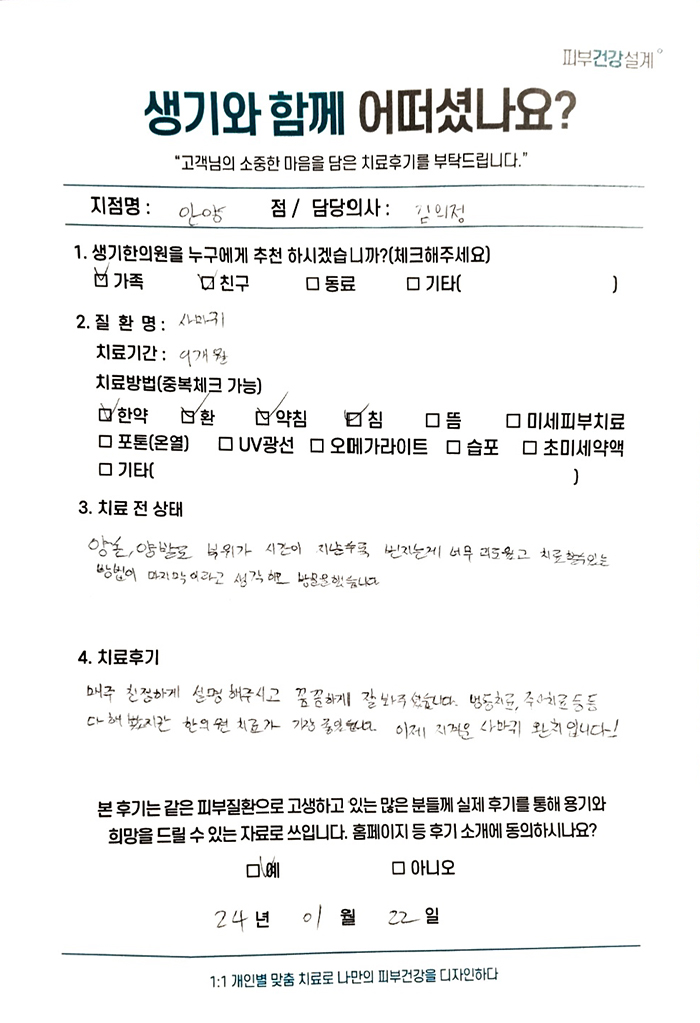 피부건강설계
생기와 함께 어떠셨나요?
“고객님의 소중한 마음을 담은 치료후기를 부탁드립니다.”
지점명 : 안양 점 / 담당의사 : 김의정
1. 생기한의원을 누구에게 추천 하시겠습니까?(체크해주세요)
☑ 가족 ☑ 친구 ☐ 동료 ☐ 기타( )
2. 질 환 명 : 사마귀
치료기간 : 9개월
치료방법(중복체크 가능)
☑ 한약 ☑ 환 ☑ 약침 ☑ 침 ☐ 뜸 ☐ 미세피부치료
☐ 포톤(온열) ☐ UV광선 ☐ 오메가라이트 ☐ 습포 ☐ 초미세약액
☐ 기타( )
3. 치료 전 상태
양손, 양발로 부위가 시간이 지날수록 번지는게 너무 괴로웠고 치료할수있는
방법이 마지막이라고 생각해 방문을했습니다
4. 치료후기
매주 친절하게 설명 해주시고 꼼꼼하게 잘 봐주셨습니다. 냉동치료, 주사치료 등등
다 해 봤지만 한의원 치료가 가장 좋았습니다. 이제 지겨운 사마귀 완치입니다!
본 후기는 같은 피부질환으로 고생하고 있는 많은 분들께 실제 후기를 통해 용기와
희망을 드릴 수 있는 자료로 쓰입니다. 홈페이지 등 후기 소개에 동의하시나요?
☑ 예 ☐ 아니오
24 년 01 월 22 일
1:1 개인별 맞춤 치료로 나만의 피부건강을 디자인하다